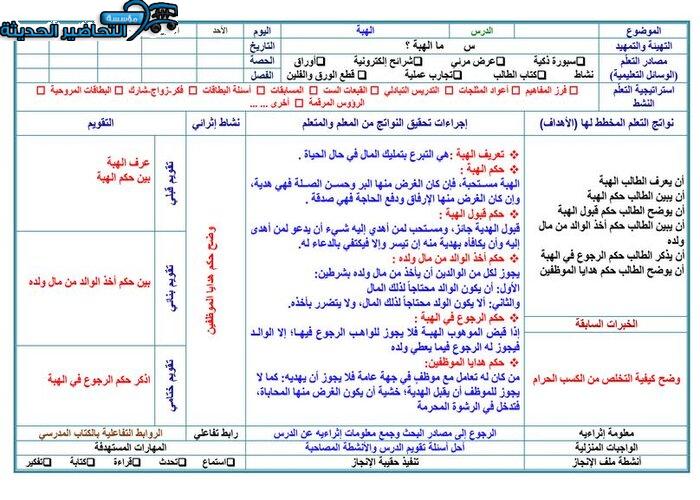 مؤسسة
التحاضير الحديثة
الموضوع
الدرس
الهبة
اليوم
الأحد
التهيئة والتمهيد
س ما الهبة ؟
التاريخ
مصادر التعلم
(الوسائل التعليمية)
سبورة ذكية
عرض مرئي
شرائح إلكترونية
أوراق
نشاط
كتاب الطالب
تجارب عملية
قطع الورق والفلين
الحصة
الفصل
استراتيجية التعلم
النشط
فرز المفاهيم
أعداد المثلجات
التدريس التبادلي
القبعات الست
المسابقات
أسئلة البطاقات
فكر-زواج-شارك
البطاقات المروحية
الرؤوس المرقمة
أخرى ... ...
نواتج التعلم المخطط لها (الأهداف)
إجراءات تحقيق النواتج من المعلم والمتعلم
نشاط إثرائي
التقويم
أن يعرف الطالب الهبة
أن يبين الطالب حكم الهبة
أن يوضح الطالب حكم قبول الهبة
أن يبين الطالب حكم أخذ الوالد من مال
ولده
أن يذكر الطالب حكم الرجوع في الهبة
أن يوضح الطالب حكم هدايا الموظفين
الخبرات السابقة
وضح كيفية التخلص من الكسب الحرام
تعريف الهبة :هي التبرع بتمليك المال في حال الحياة .
حكم الهبة :
الهبة مستحبة، فإن كان الغرض منها البر وحسن الصلة فهي هدية،
وإن كان الغرض منها الإرفاق ودفع الحاجة فهي صدقة .
حكم قبول الهبة :
قبول الهدية جائز، ومستحب لمن أهدي إليه شيء أن يدعو لمن أهدى
إليه وأن يكافأه بهدية منه إن تيسر وإلا فيكتفي بالدعاء له.
حكم أخذ الوالد من مال ولده :
يجوز لكل من الوالدين أن يأخذ من مال ولده بشرطين:
الأول: أن يكون الوالد محتاجاً لذلك
والثاني: ألا يكون الولد محتاجاً لذلك المال، ولا يتضرر بأخذه.
حكم الرجوع في الهبة :
إذا قبض الموهوب الهبة فلا يجوز للواهب الرجوع فيها؛ إلا الوالد
فيجوز له الرجوع فيما يعطي ولده
حكم هدايا الموظفين:
من كان له تعامل مع موظف في جهة عامة فلا يجوز أن يهديه: كما لا
يجوز للموظف أن يقبل الهدية؛ خشية أن يكون الغرض منها المحاباة،
فتدخل في الرشوة المحرمة
وضح حكم هدايا الموظفين
تقويم قبلي
عرف الهبة
بين حكم الهبة
تقويم بنائي
بين حكم أخذ الوالد من مال ولده
تقويم ختامي
اذكر حكم الرجوع في الهبة
معلومة إثرائيه
الرجوع إلى مصادر البحث وجمع معلومات إثراءيه عن الدرس
رابط تفاعلي
الروابط التفاعلية بالكتاب المدرسي
الواجبات المنزلية
أحل أسئلة تقويم الدرس والأنشطة المصاحبة
المهارات المستهدفة
أنشطة ملف الإنجاز
تنفيذ حقيبة الإنجاز
استماع
تحدث
قراءة
كتابة
تفكير